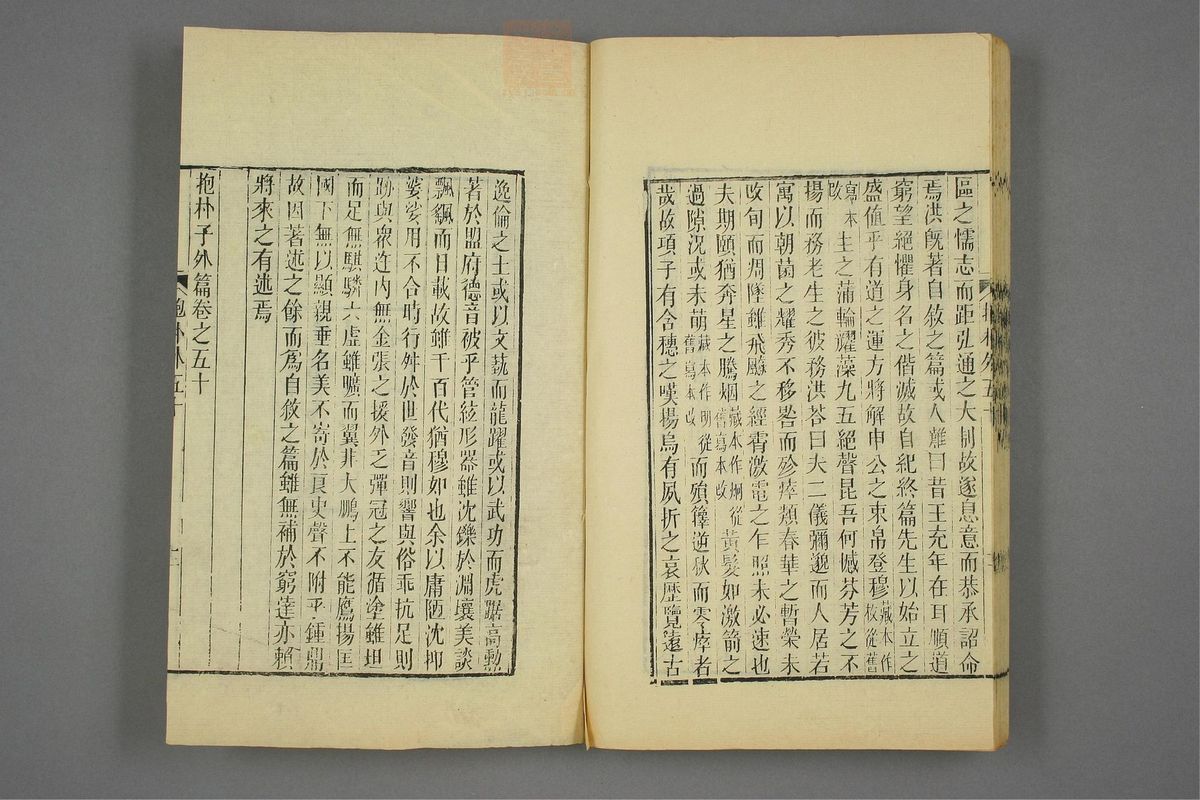 區之懦志而距弘通之大制故遂息意而恭承詔命
焉洪旣著自敘之篇或人難曰昔王充年在耳順道
窮望絕懼身名之偕滅故自紀終篇先生以始立之
盛值乎有道之運方將解申公之束帛登穆藏本作枚從舊
寫本改生之蒲輪耀藻九五絕聲昆吾何憾芬芳之不
揚而務老生之彼務洪荅曰夫二儀彌邈而人居若
寓以朝菌之耀秀不移晷而殄瘁類春華之暫榮未
改旬而凋墜雖飛飈之經霄激電之乍照未必速也
夫期頤猶奔星之騰烟藏本作炯從舊寫本改黃髮如激箭之
過隙況或未萌藏本作明從舊寫本改而殞籜逆秋而零瘁者
哉故項子有含穗之嘆揚烏有夙折之哀歷覽遠古
逸倫之士或以文藝而龍躍或以武功而虎踞高勳
著於盟府德音被乎管絃形器雖沈鑠於淵壤美談
飄颻而日載故雖千百代猶穆如也余以庸陋沈抑
婆娑用不合時行舛於世發音則響與俗乖抗足則
跡與衆迕內無金張之援外乏彈冠之友循塗雖坦
而足無騏驎六虛雖曠而翼非大鵬上不能鷹揚匡
國下無以顯親垂名美不寄於良史聲不附乎鍾鼎
故因著述之餘而爲自敘之篇雖無補於窮達亦賴
將來之有述焉
抱朴子外篇卷之五十